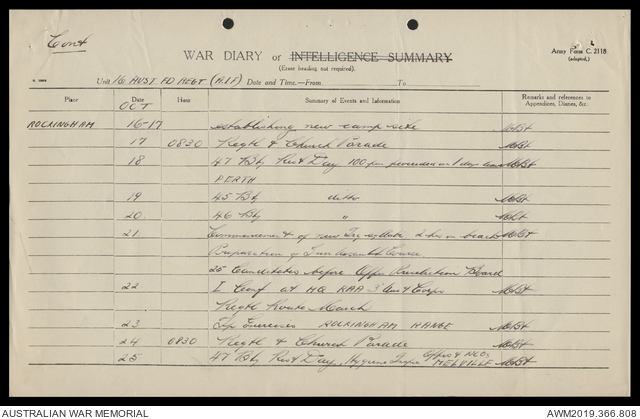 Cont
WAR DIARY or INTELLIGENCE SUMMARY
(Erase heading not required).
Army Form C. 2118
(adapted.)
Unit 16 AUST FD REGT (A.I.F) Date and Time.—From To
Place Date Hour Summary of Events and Information Remarks and references to Appendices, Diaries, &c.
OCT
ROCKINGHAM 16-17 establishing new camp site
17 0830 Regtl & Church Parade
18 47 Bty Rest Day 100 per on 1 days leave
PERTH
19 45 Bty ditto
20 46 Bty "
21 Commencement of new Trg syllabus 2 hrs on beach
Preparation of Course
25 Candidates before Offrs Selection Board
22 I Conf at HQ RAA 3 Aust Corps
Regtl Route March
23 Exercises ROCKINGHAM RANGE
24 0830 Regtl & Church Parade
25 47 Bty Rest Day, Hygiene Offrs & NCOs MELVILLE
AUSTRALIAN WAR MEMORIAL
AWM2019.366.808